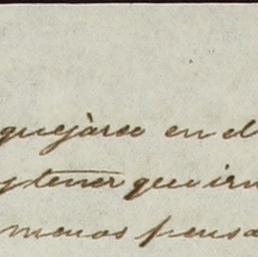 quejàrse en el
y tener que ir
menos pensa